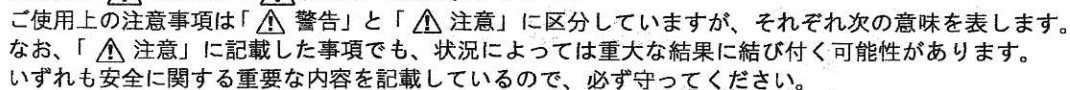 ご使用上の注意事項は「⚠ 警告」と「⚠ 注意」に区分していますが、それぞれ次の意味を表します。
なお、「⚠ 注意」に記載した事項でも、状況によっては重大な結果に結び付く可能性があります。
いずれも安全に関する重要な内容を記載しているので、必ず守ってください。